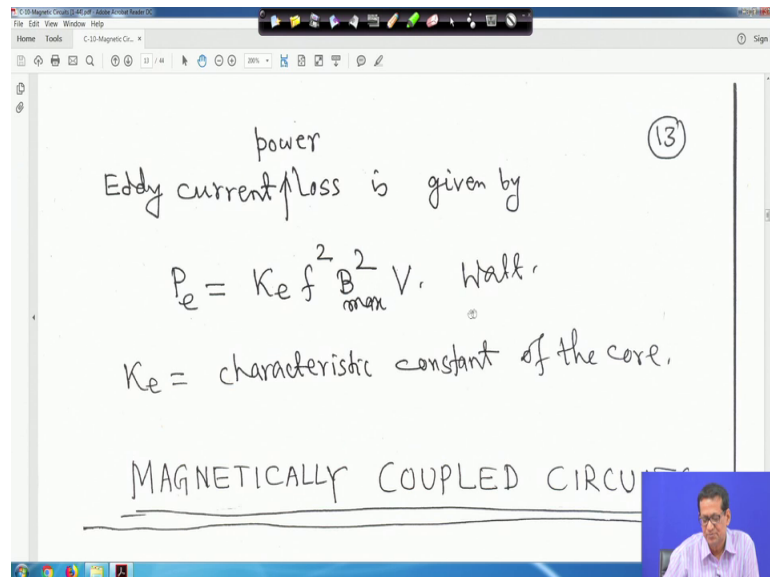 C-10-Magnetic Circuits [1-44].pdf - Adobe Acrobat Reader DC
File Edit View Window Help
Home Tools C-10-Magnetic Cir... × Sign
13 / 44 200%
13
power
Eddy current loss is given by
Pe = Ke f² B²max V. Watt.
Ke = characteristic constant of the core.
MAGNETICALLY COUPLED